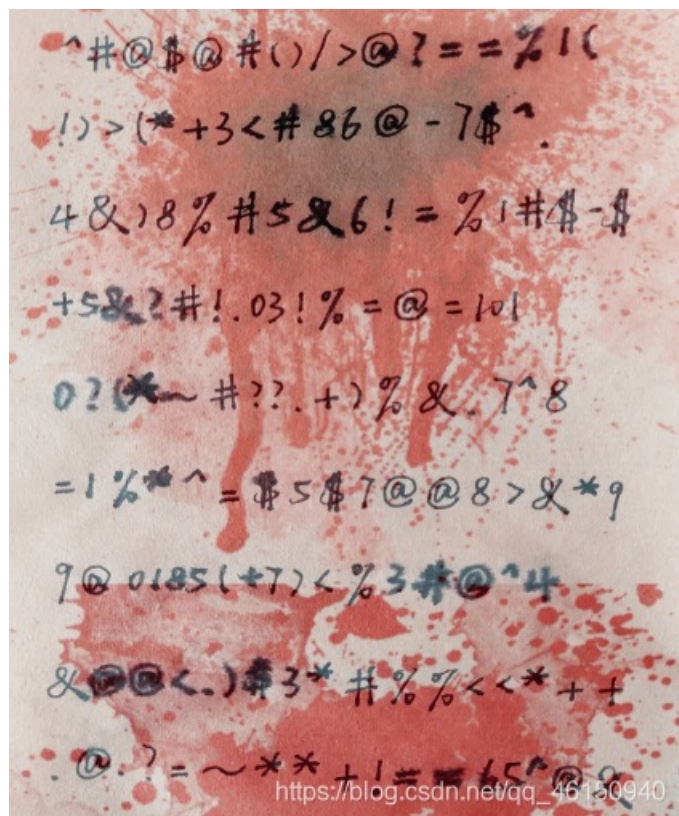 ^#@$@#()/>@?==%1(
!)>(*+3<#86@-7$^.
4&)8%#5&6!=%1#$-$
+5&?#!.03!%=@=101
0?(*~#??.+)%&.7^8
=1%*^=$5$7@@8>&*9
9@0185(+7)<%3#@^4
&@@<.)#3*#%%<<*++
.@.?=~**+!==65^@&
https://blog.csdn.net/qq_46150940